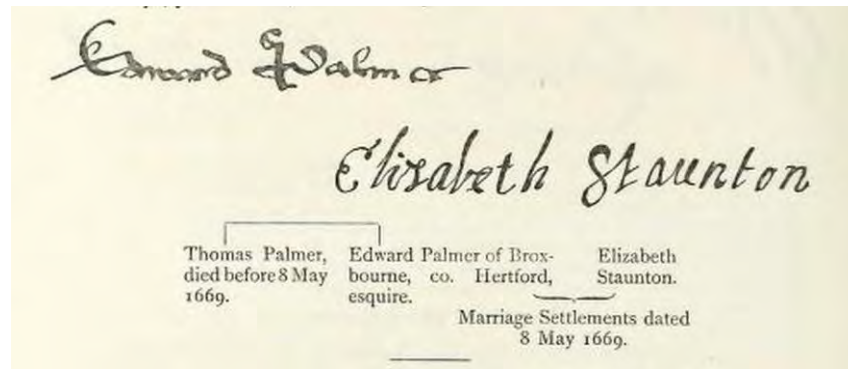 Edward Palmer
Elisabeth Staunton
Thomas Palmer,
died before 8 May
1669.
Edward Palmer of Brox-
bourne, co. Hertford,
esquire.
Elizabeth
Staunton.
Marriage Settlements dated
8 May 1669.